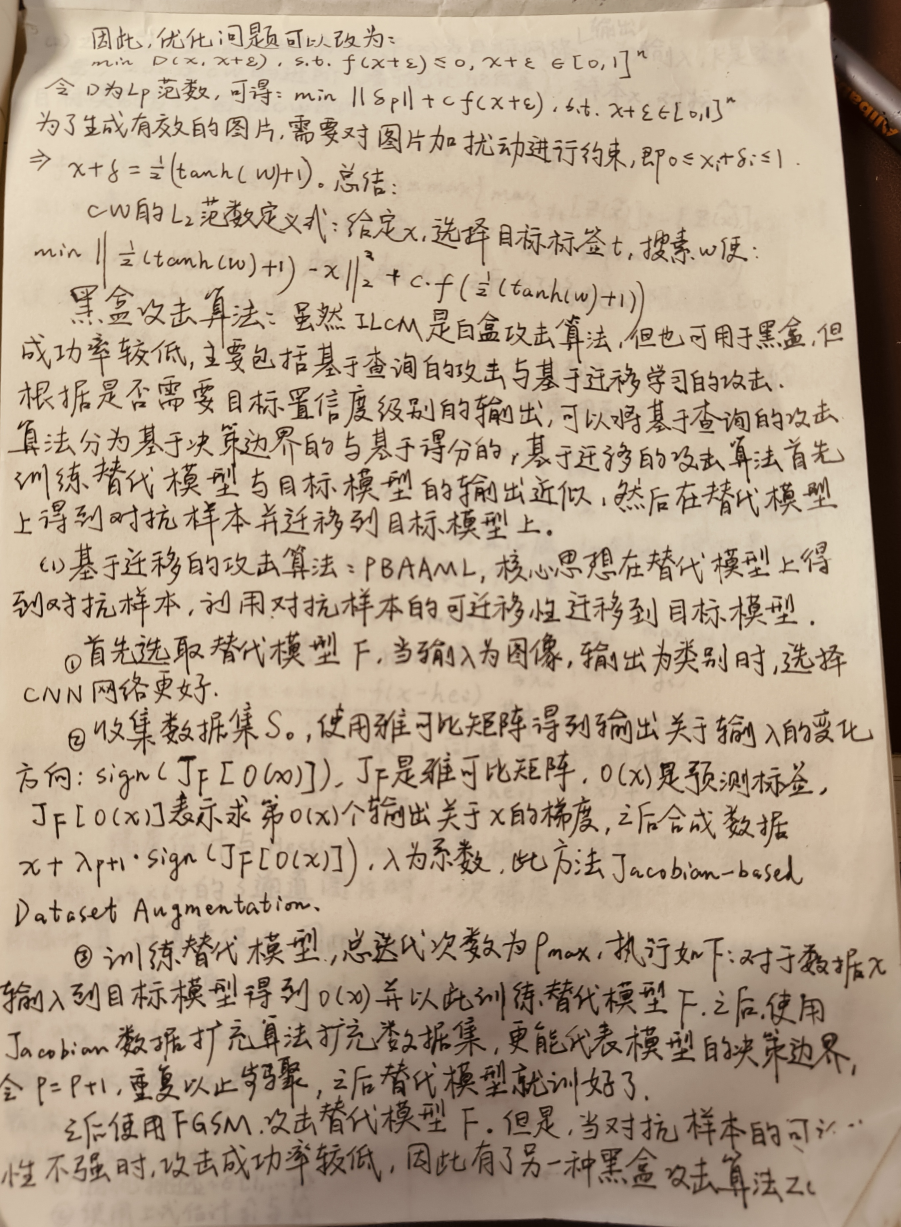 因此,优化问题可以改为:
min D(x, x+ε), s.t. f(x+ε) ≤ 0, x+ε ∈ [0,1]ⁿ
令D为Lp范数,可得: min ||δp|| + c f(x+ε), s.t. x+ε∈[0,1]ⁿ
为了生成有效的图片,需要对图片加扰动进行约束,即0≤xᵢ+δᵢ≤1.
⇒ x+δ = ½(tanh(w)+1)。总结:
CW的L₂范数定义式:给定x,选择目标标签t,搜索w使:
min ||½(tanh(w)+1) - x||₂² + c·f(½(tanh(w)+1))
黑盒攻击算法:虽然ILCM是白盒攻击算法,但也可用于黑盒,但
成功率较低,主要包括基于查询的攻击与基于迁移学习的攻击.
根据是否需要目标置信度级别的输出,可以将基于查询的攻击
算法分为基于决策边界的与基于得分的,基于迁移的攻击算法首先
训练替代模型与目标模型的输出近似,然后在替代模型
上得到对抗样本并迁移到目标模型上.
(1)基于迁移的攻击算法:PBAAML,核心思想在替代模型上得
到对抗样本,利用对抗样本的可迁移性迁移到目标模型.
①首先选取替代模型F,当输入为图像,输出为类别时,选择
CNN网络更好.
②收集数据集S₀,使用雅可比矩阵得到输出关于输入的变化
方向: sign(JF[O(x)]), JF是雅可比矩阵, O(x)是预测标签,
JF[O(x)]表示求第O(x)个输出关于x的梯度,之后合成数据
x+λp+1·sign(JF[O(x)]), λ为系数,此方法Jacobian-based
Dataset Augmentation.
③训练替代模型,总迭代次数为ρmax,执行如下:对于数据x
输入到目标模型得到O(x)并以此训练替代模型F.之后,使用
Jacobian数据扩充算法扩充数据集,更能代表模型的决策边界,
令ρ=ρ+1,重复以上步骤,之后替代模型就训好了.
之后使用FGSM攻击替代模型F.但是,当对抗样本的可
性不强时,攻击成功率较低,因此有了另一种黑盒攻击算法